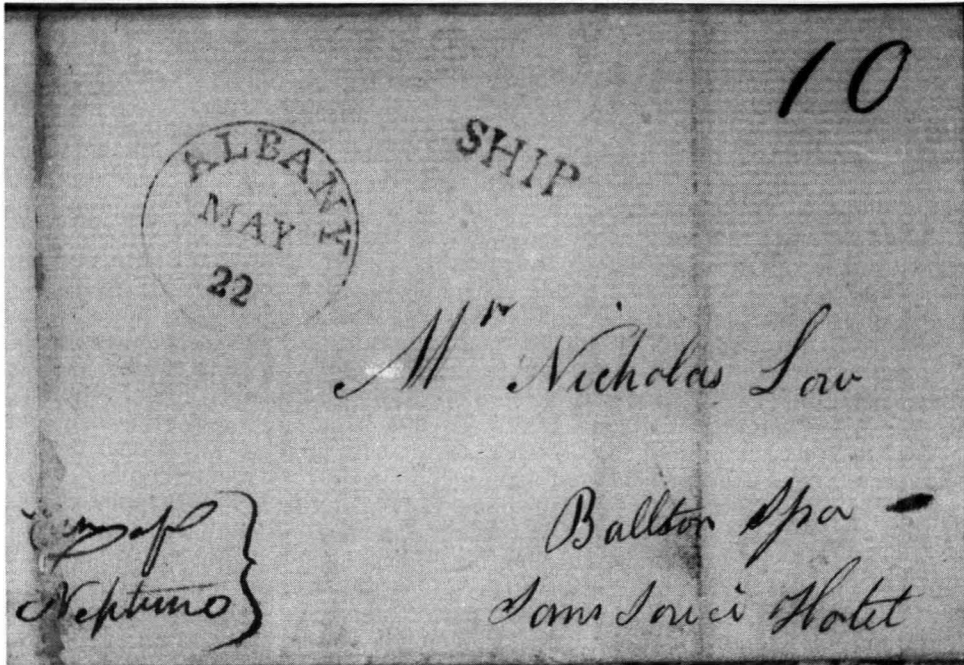 10
SHIP
ALBANY
MAY
22
Mr Nicholas Low
Ballston Spa
Sans Souci Hotel
Neptune